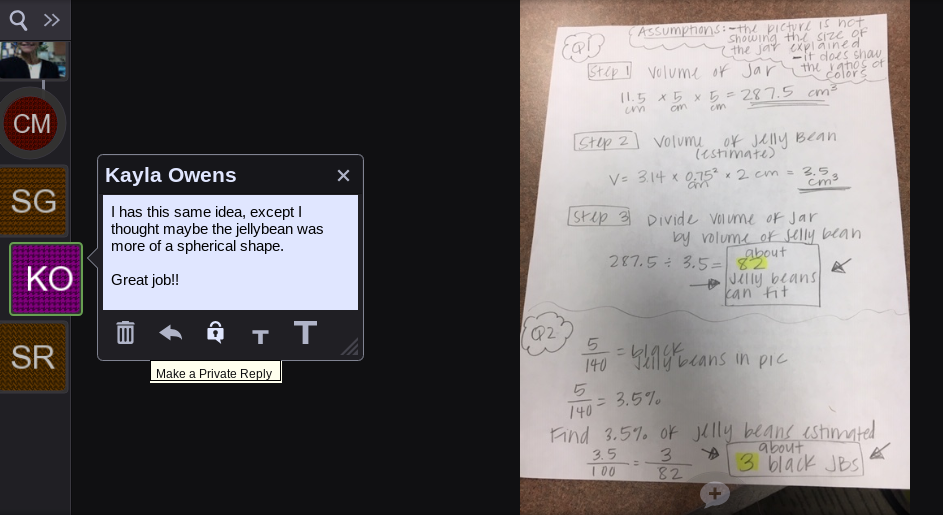 CM
SG
KO
SR
Kayla Owens
I has this same idea, except I
thought maybe the jellybean was
more of a spherical shape.
Great job!!
T T
Make a Private Reply
Q1
Assumptions: - the picture is not
showing the size of
the jar explained
- it does show
the ratios of
colors
Step 1 Volume of Jar
11.5 cm × 5 cm × 5 cm = 287.5 cm³
Step 2 Volume of Jelly Bean
(estimate)
V = 3.14 × 0.75² cm × 2 cm = 3.5 cm³
Step 3 Divide volume of Jar
by volume of Jelly bean
287.5 ÷ 3.5 = about 82
Jelly beans
can fit
Q2
5/140 = black
Jelly beans in pic
5/140 = 3.5%
Find 3.5% of jelly beans estimated
3.5/100 = 3/82 about
3 black JBs